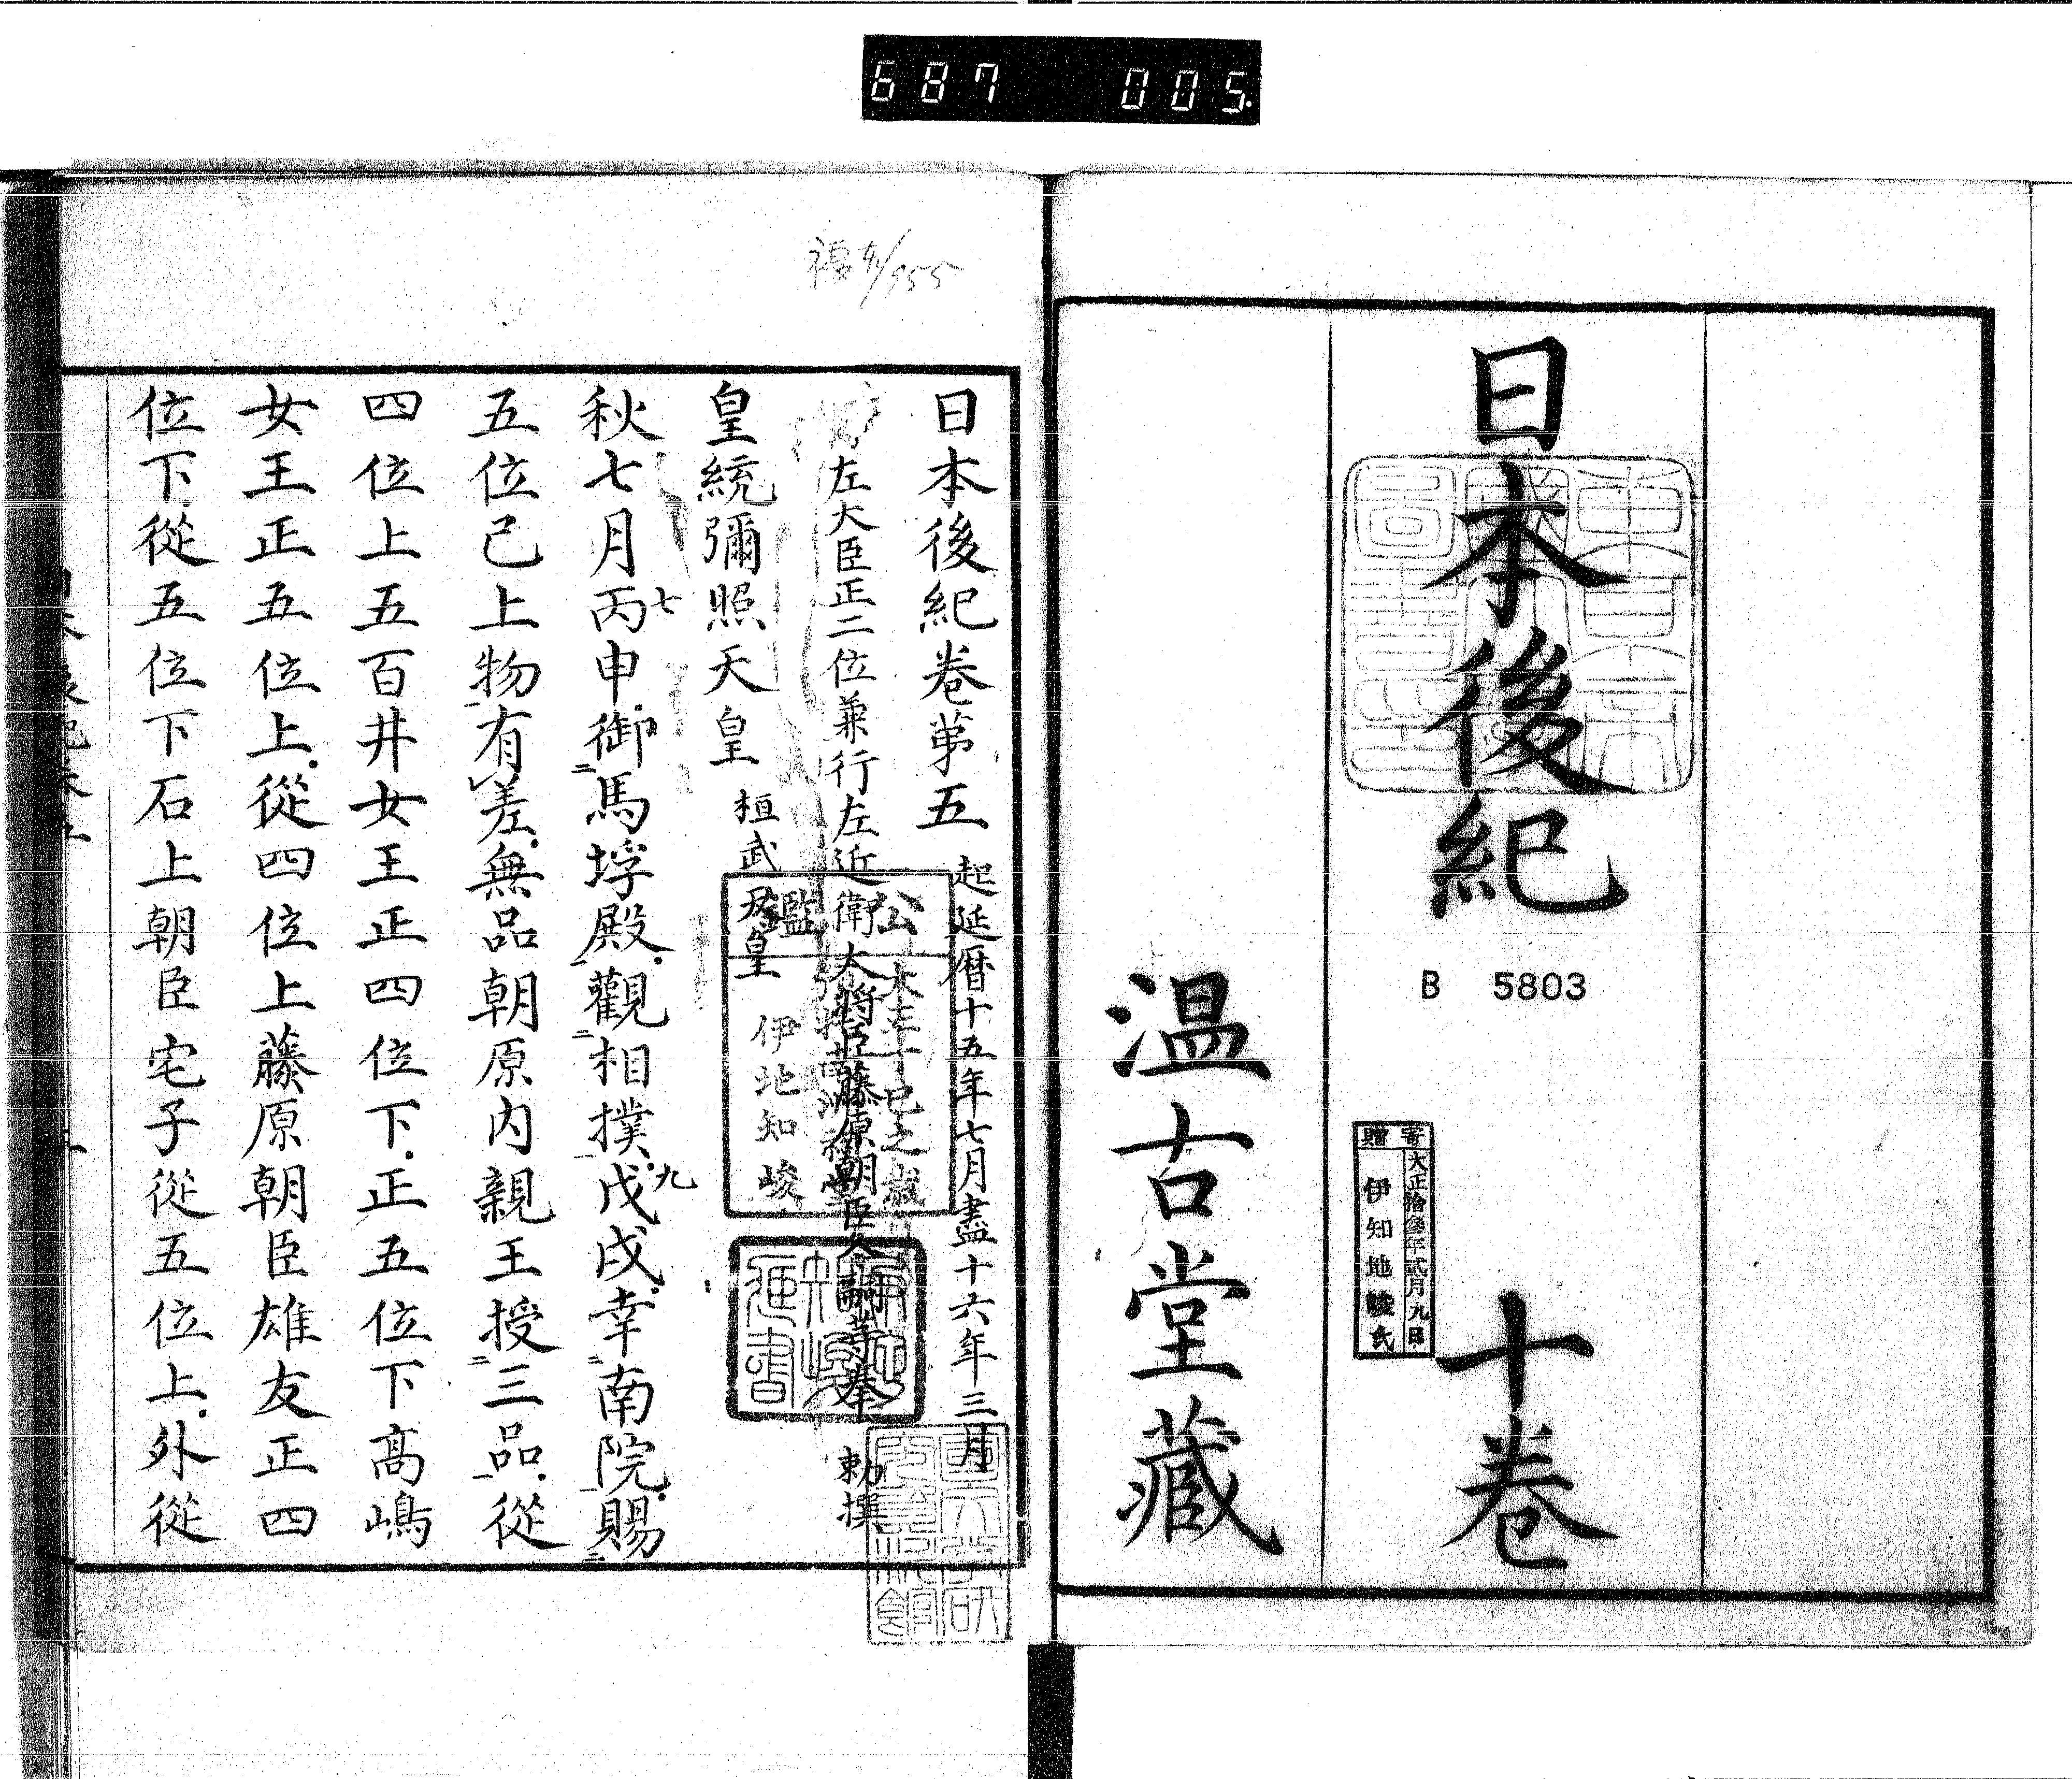 687 005.
日本後紀 十巻
B 5803
寄贈
大正拾參年貳月九日
伊知地峻氏
温古堂藏
複刻/955
日本後紀卷第五 起延暦十五年七月盡十六年三月
左大臣正二位兼行左近衛大將臣藤原朝臣冬嗣等奉 勅撰
皇統彌照天皇 桓武天皇
伊地知峻
秋七月丙申御馬埒殿觀相撲戊戌幸南院賜
七
九
五位已上物有差無品朝原内親王授三品從
四位上五百井女王正四位下正五位下髙嶋
女王正五位上從四位上藤原朝臣雄友正四
位下從五位下石上朝臣宅子從五位上外從